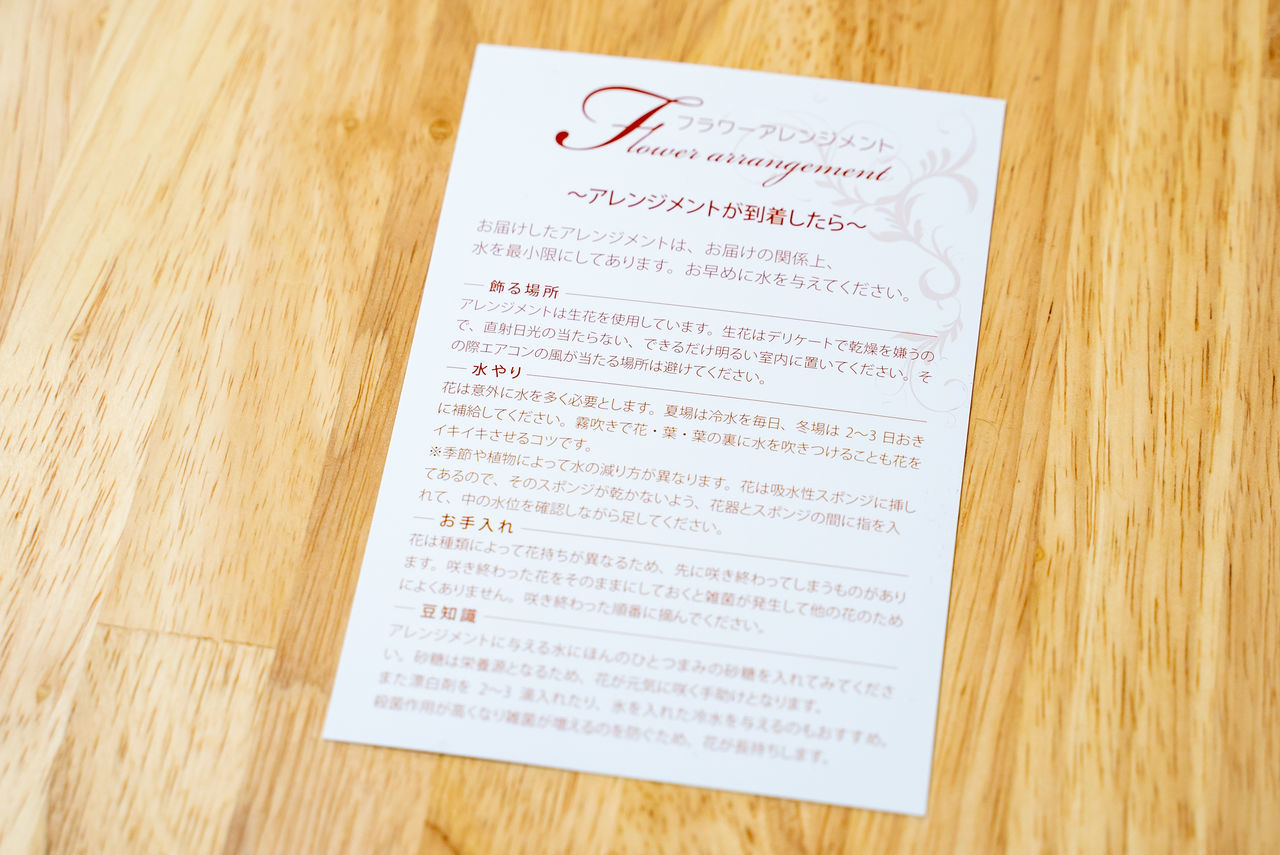 フラワーアレンジメント
Flower arrangement
～アレンジメントが到着したら～
お届けしたアレンジメントは、お届けの関係上、
水を最小限にしてあります。お早めに水を与えてください。
飾る場所
アレンジメントは生花を使用しています。生花はデリケートで乾燥を嫌うの
で、直射日光の当たらない、できるだけ明るい室内に置いてください。そ
の際エアコンの風が当たる場所は避けてください。
水やり
花は意外に水を多く必要とします。夏場は冷水を毎日、冬場は 2～3 日おき
に補給してください。霧吹きで花・葉・葉の裏に水を吹きつけることも花を
イキイキさせるコツです。
※季節や植物によって水の減り方が異なります。花は吸水性スポンジに挿し
てあるので、そのスポンジが乾かないよう、花器とスポンジの間に指を入
れて、中の水位を確認しながら足してください。
お手入れ
花は種類によって花持ちが異なるため、先に咲き終わってしまうものがあり
ます。咲き終わった花をそのままにしておくと雑菌が発生して他の花のため
によくありません。咲き終わった順番に摘んでください。
豆知識
アレンジメントに与える水にほんのひとつまみの砂糖を入れてみてくださ
い。砂糖は栄養源となるため、花が元気に咲く手助けとなります。
また漂白剤を 2～3 滴入れたり、氷を入れた冷水を与えるのもおすすめ。
殺菌作用が高くなり雑菌が増えるのを防ぐため、花が長持ちします。